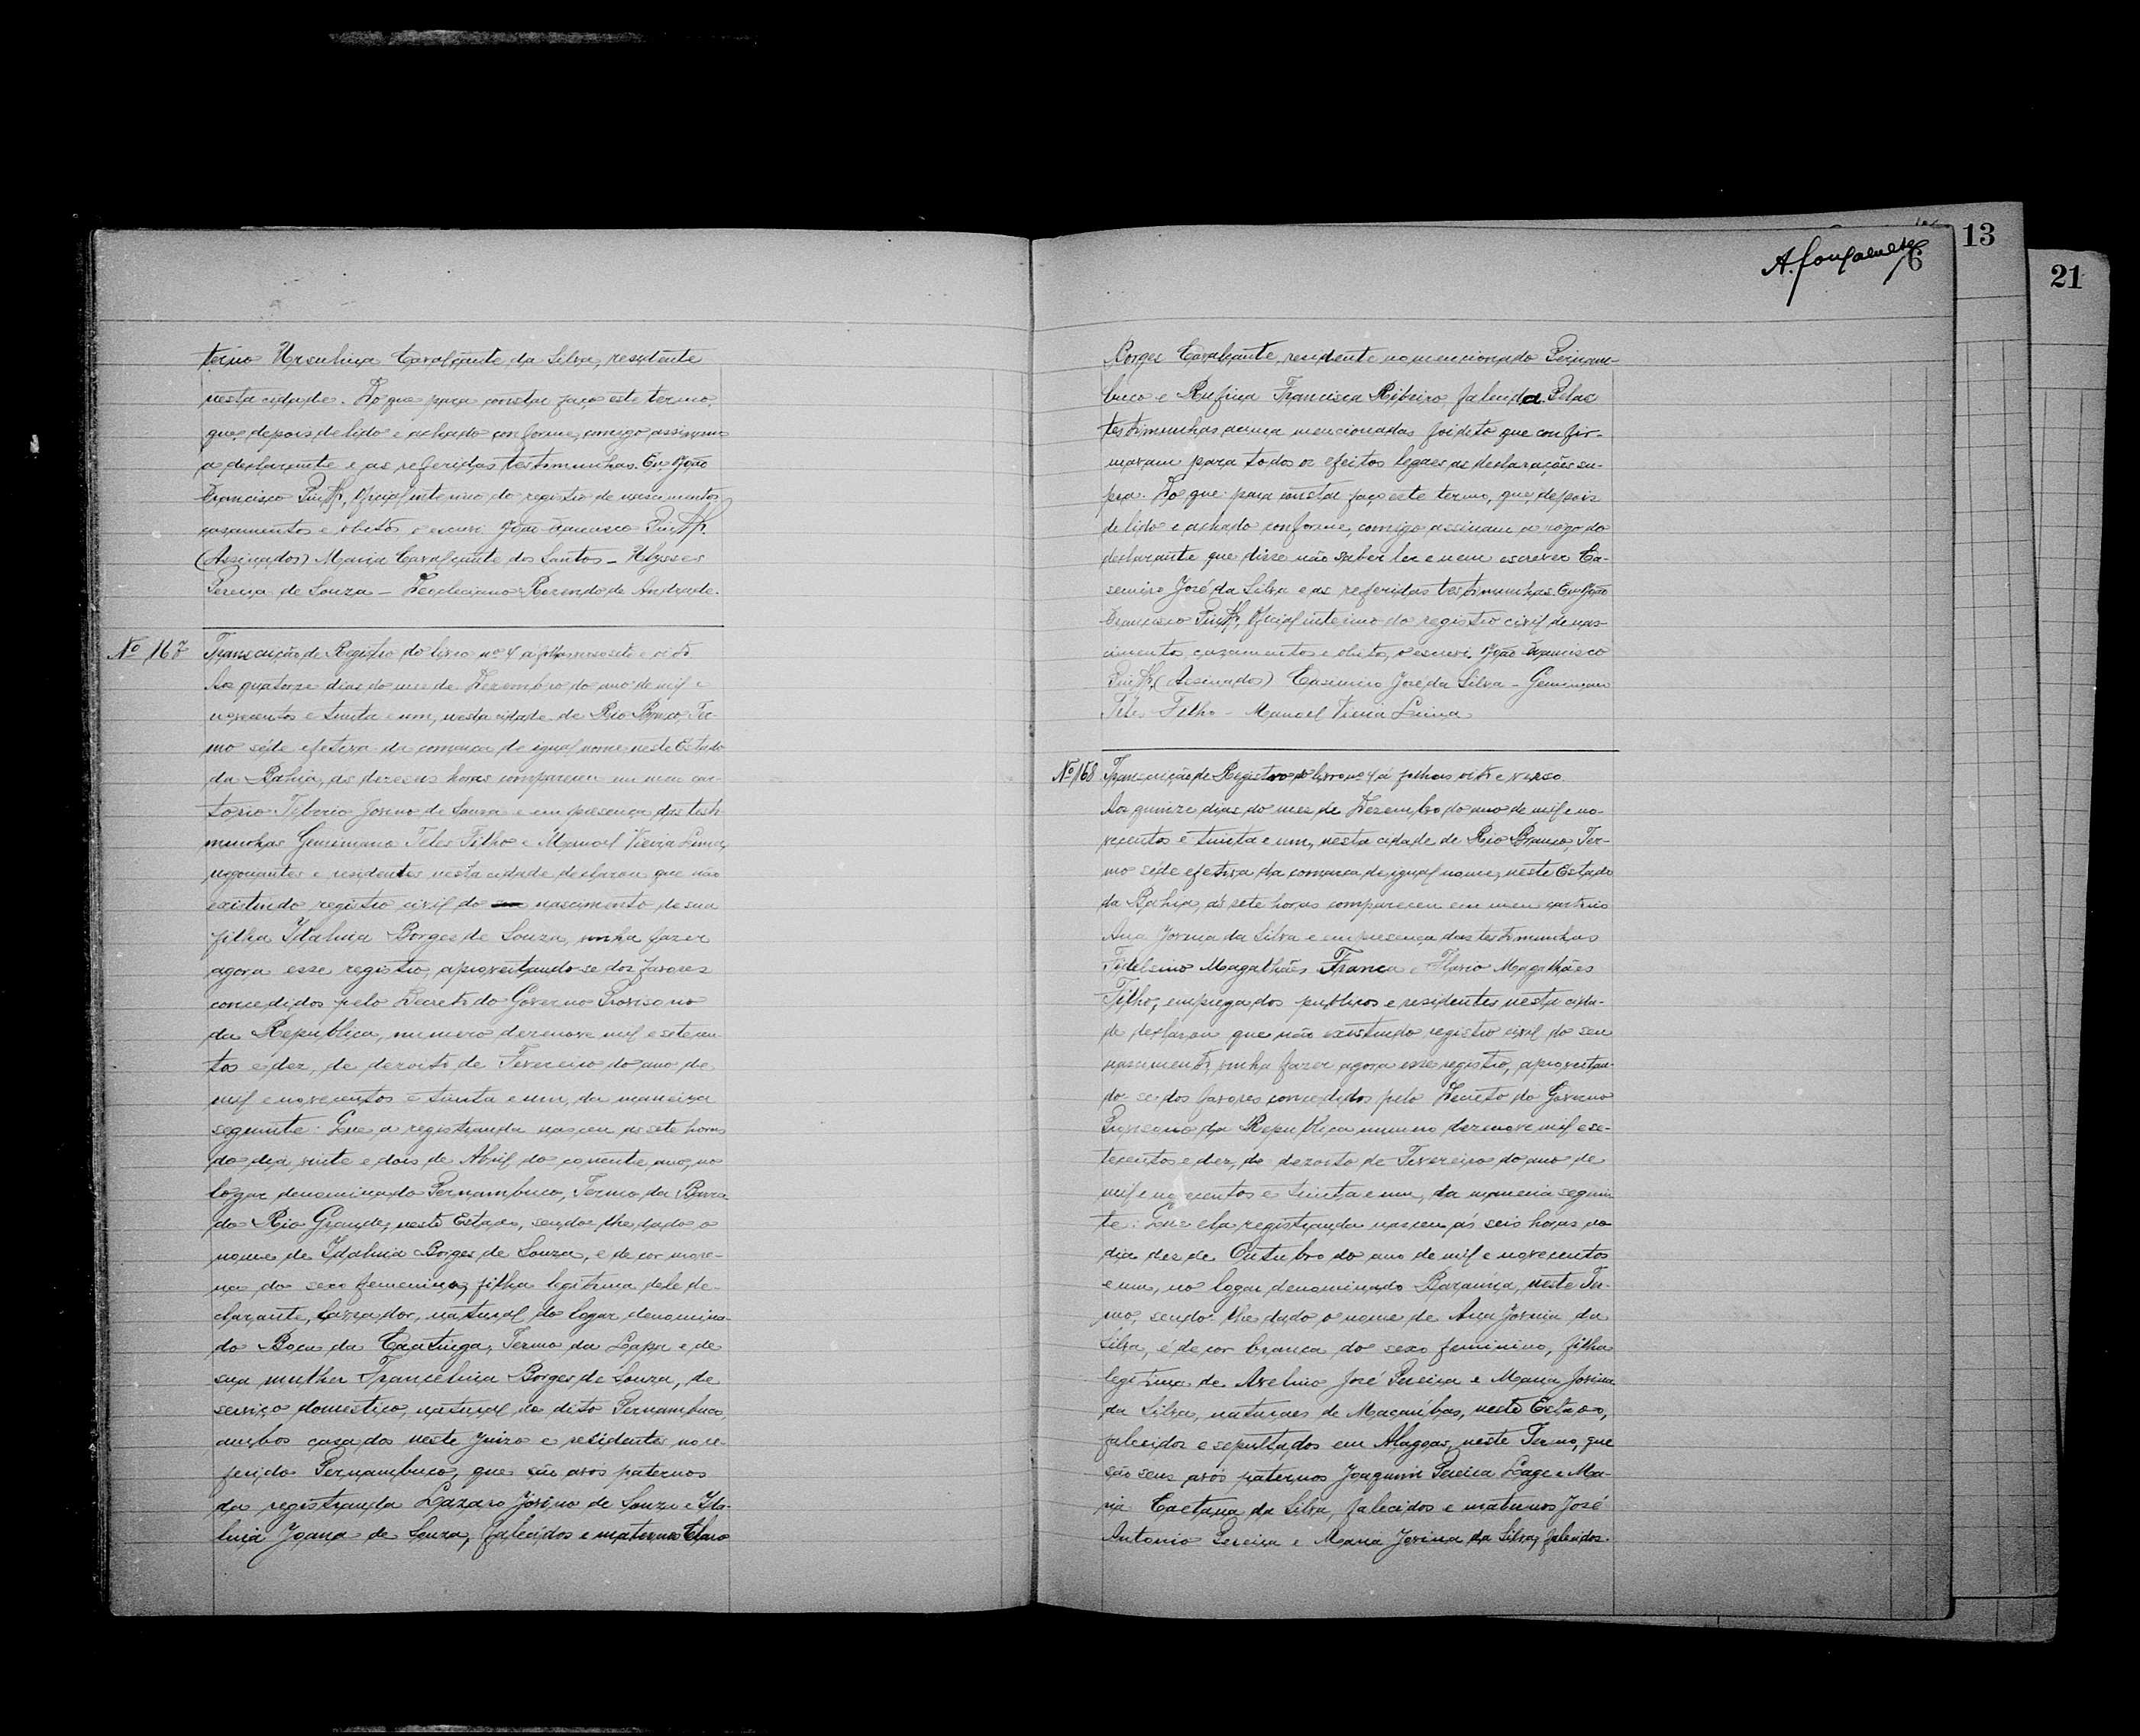 terno Ursulina Cavalcante da Silva, residente
nesta cidade. Do que para constar faço este termo,
que, depois de lido e achado conforme, comigo assinam
a declarante e as referidas testimunhas. Eu João
Francisco Oficial interino do registro de nascimentos
casamentos e obitos o escrevi João Francisco
(Assinados) Maria Cavalcante dos Santos – Ulysses
Pereira de Souza – Deocleciano Rozendo de Andrade.
Nº 167 Transcrição de Registro do livro nº 4 a folhas verso sete e oito
Aos quatorze dias do mez de Dezembro do ano de mil e
novecentos e trinta e um, nesta cidade de Rio Branco, Ter-
mo séde efetiva da comarca de igual nome neste Estado
da Bahia, ás dezeseis horas compareceu em meu car-
torio Tiburcio Josino de Souza e em presença das testi
munhas Geminiano Teles Filho e Manoel Vieira Lima,
negociantes e residentes nesta cidade, declarou que não
existindo registro civil do nascimento de sua
filha Idalina Borges de Souza, vinha fazer
agora esse registro, aproveitando-se dos favores
concedidos pelo Decreto do Governo Provisorio
da Republica, numero dezenove mil e setecen-
tos e dez, de dezoito de Fevereiro do ano de
mil e novecentos e trinta e um, da maneira
seguinte: Que a registranda nasceu ás sete horas
do dia vinte e dois de Abril do corrente ano, no
logar denominado Pernambuco, Termo da Barra
do Rio Grande, neste Estado, sendo-lhe dado o
nome de Idalina Borges de Souza, é de cor more-
na do sexo femenino, filha legitima dele de-
clarante, lavrador, natural do logar denomina-
do Boca da Caatinga, Termo da Lapa e de
sua mulher Francelina Borges de Souza, de
serviço domestico, natural do dito Pernambuco,
ambos casados neste Juizo e residentes no re-
ferido Pernambuco, que são avós paternos
da registranda Lazaro Josino de Souza e Ida-
lina Joana de Souza, falecidos e maternos
6
13
21
Borges Cavalcante, residente no mencionado Pernam-
buco e Rufina Francisca Ribeiro, falecida. Pelas
testimunhas acima mencionadas foi dito que confir-
mavam para todos os efeitos legaes as declarações su-
pra. Do que para constar faço este termo, que, depois
de lido e achado conforme, comigo assinam a rogo do
declarante que disse não saber ler e nem escrever Ca-
semiro José da Silva e as referidas testimunhas. Eu João
Francisco Oficial interino do registro civil de nas-
cimentos, cazamentos e obitos, o escrevi. João Francisco
(Assinados) Casemiro José da Silva – Geminiano
Teles Filho – Manoel Vieira Lima
Nº 168 Transcrição de Registro do livro nº 4 á folhas oito e verso
Aos quinze dias do mez de Dezembro do ano de mil e no-
vecentos e trinta e um, nesta cidade de Rio Branco, Ter-
mo séde efetiva da comarca de igual nome, neste Estado
da Bahia, ás sete horas compareceu em meu cartorio
Ana Jovina da Silva e em presença das testimunhas
Fidelsino Magalhães Franca e Flavio Magalhães
Filho, empregados publicos e residentes nesta cida-
de declarou que não existindo registro civil do seu
nascimento, vinha fazer agora esse registro, aproveitan-
do-se dos favores concedidos pelo Decreto do Governo
Provisorio da Republica numero dezenove mil e se-
tecentos e dez, de dezoito de Fevereiro do ano de
mil e novecentos e trinta e um, da maneira seguin
te: Que ela registranda nasceu ás seis horas do
dia dez de Outubro do ano de mil e novecentos
e um, no logar denominado Barauna, neste Ter-
mo, sendo-lhe dado o nome de Ana Jovina da
Silva, é de cor branca do sexo feminino, filha
legitima de Avelino José Pereira e Maria Jovina
da Silva, naturaes de Macaúbas, neste Estado,
falecidos e sepultados em Alagoas, neste Termo, que
são seus avós paternos Joaquim Pereira Lage e Ma-
ria Caetana da Silva, falecidos e maternos José
Antonio Pereira e Maria Jovina da Silva, falecidos.